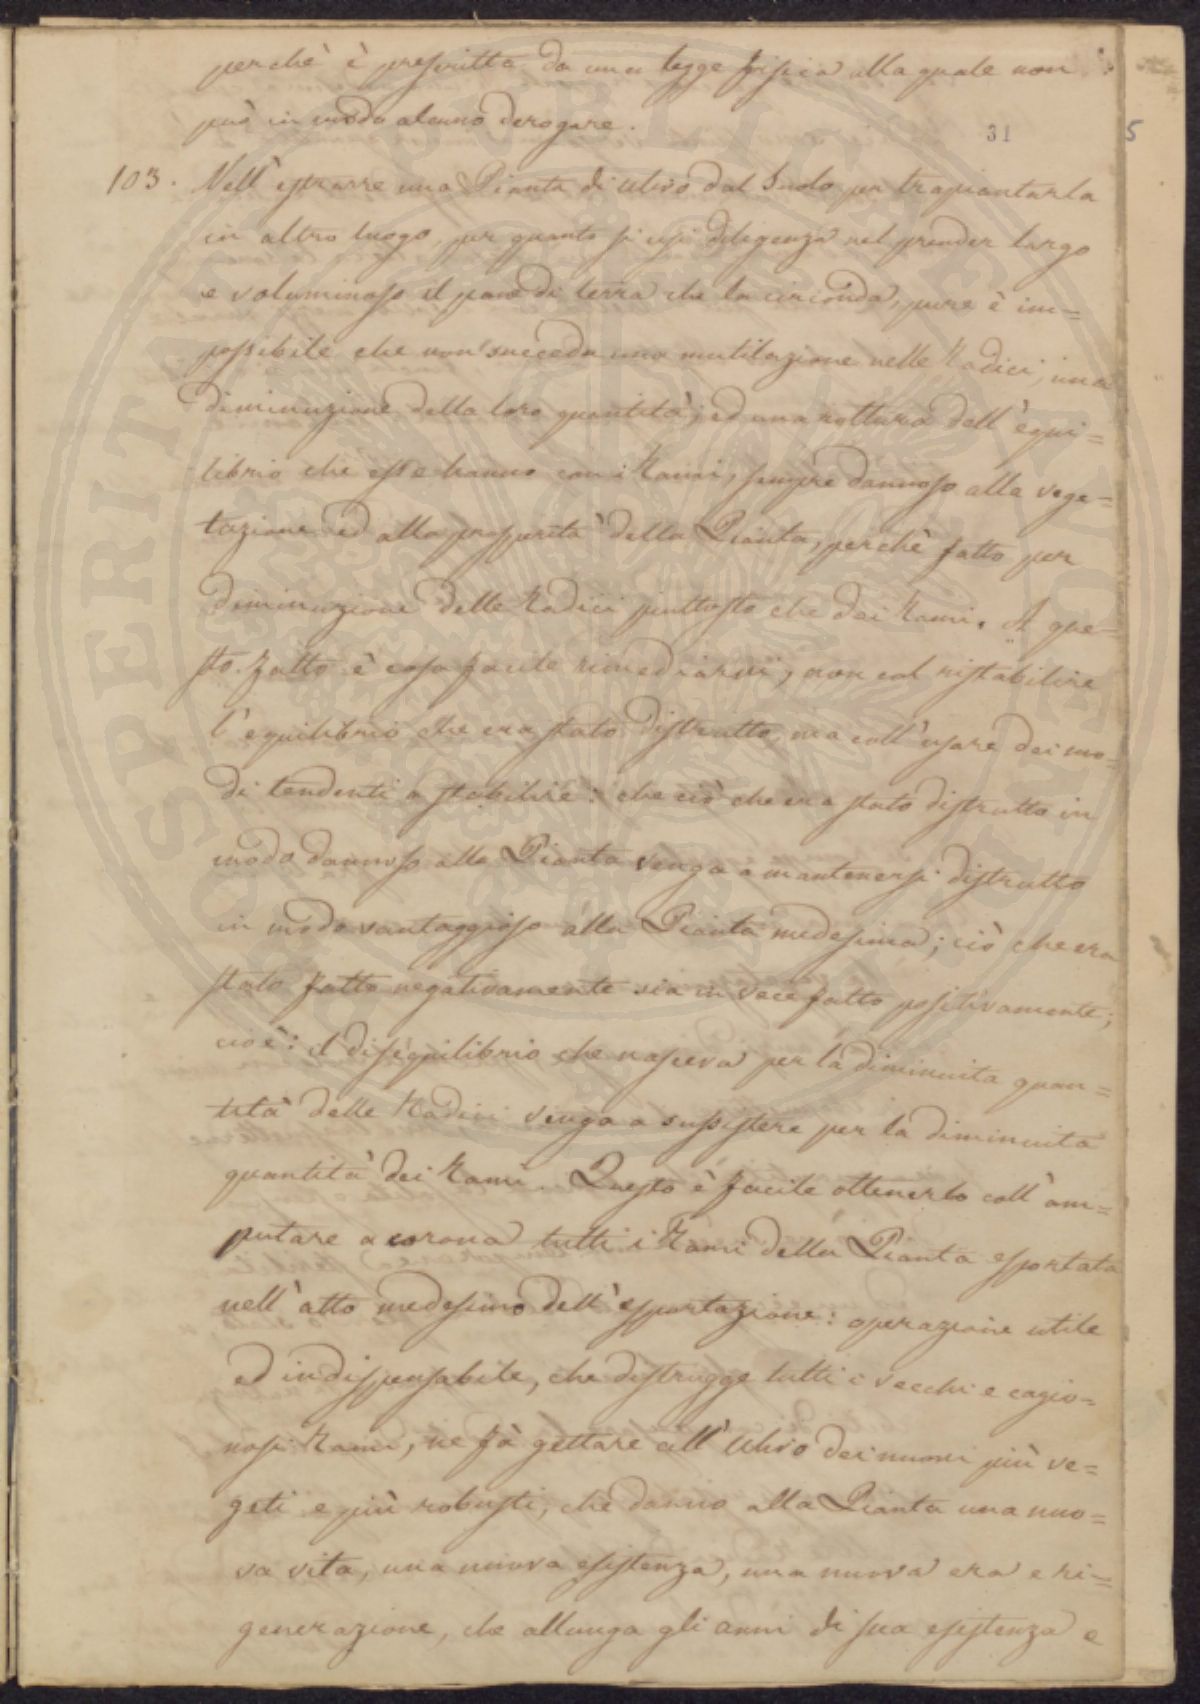 perchè è prescritta da una legge fisica alla quale non
può in modo alcuno derogare.
31
5
103. Nell'estrarre una Pianta di Ulivo dal Suolo per trapiantarla
in altro luogo, per quanto si usi diligenza nel prender largo
e voluminoso il pane di terra che la circonda, pure è im=
possibile che non succeda una mutilazione nelle Radici, una
diminuzione della loro quantità; ed una rottura dell'equi=
librio che esse hanno con i Rami, sempre dannoso alla vege=
tazione ed alla prosperità della Pianta, perchè fatto per
diminuzione delle Radici piuttosto che dei Rami. A que=
sto fatto è cosa facile rimediarvi, non col ristabilire
l'equilibrio che era stato distrutto, ma coll'usare dei mo=
di tendenti a stabilire: che ciò che era stato distrutto in
modo dannoso alla Pianta venga a mantenersi distrutto
in modo vantaggioso alla Pianta medesima; ciò che era
stato fatto negativamente sia in vece fatto positivamente;
cioè: il disequilibrio che nasceva per la diminuita quan=
tità delle Radici venga a sussistere per la diminuita
quantità dei Rami. Questo è facile ottenerlo coll'am=
putare a corona tutti i Rami della Pianta esportata
nell'atto medesimo dell'esportazione: operazione utile
ed indispensabile, che distrugge tutti i vecchi e cagio=
nosi Rami, ne fà gettare all'Ulivo dei nuovi più ve=
geti e più robusti, che danno alla Pianta una nuo=
va vita, una nuova esistenza, una nuova era e ri=
generazione, che allunga gli anni di sua esistenza e
PUBLICAE
PROSPERITATI